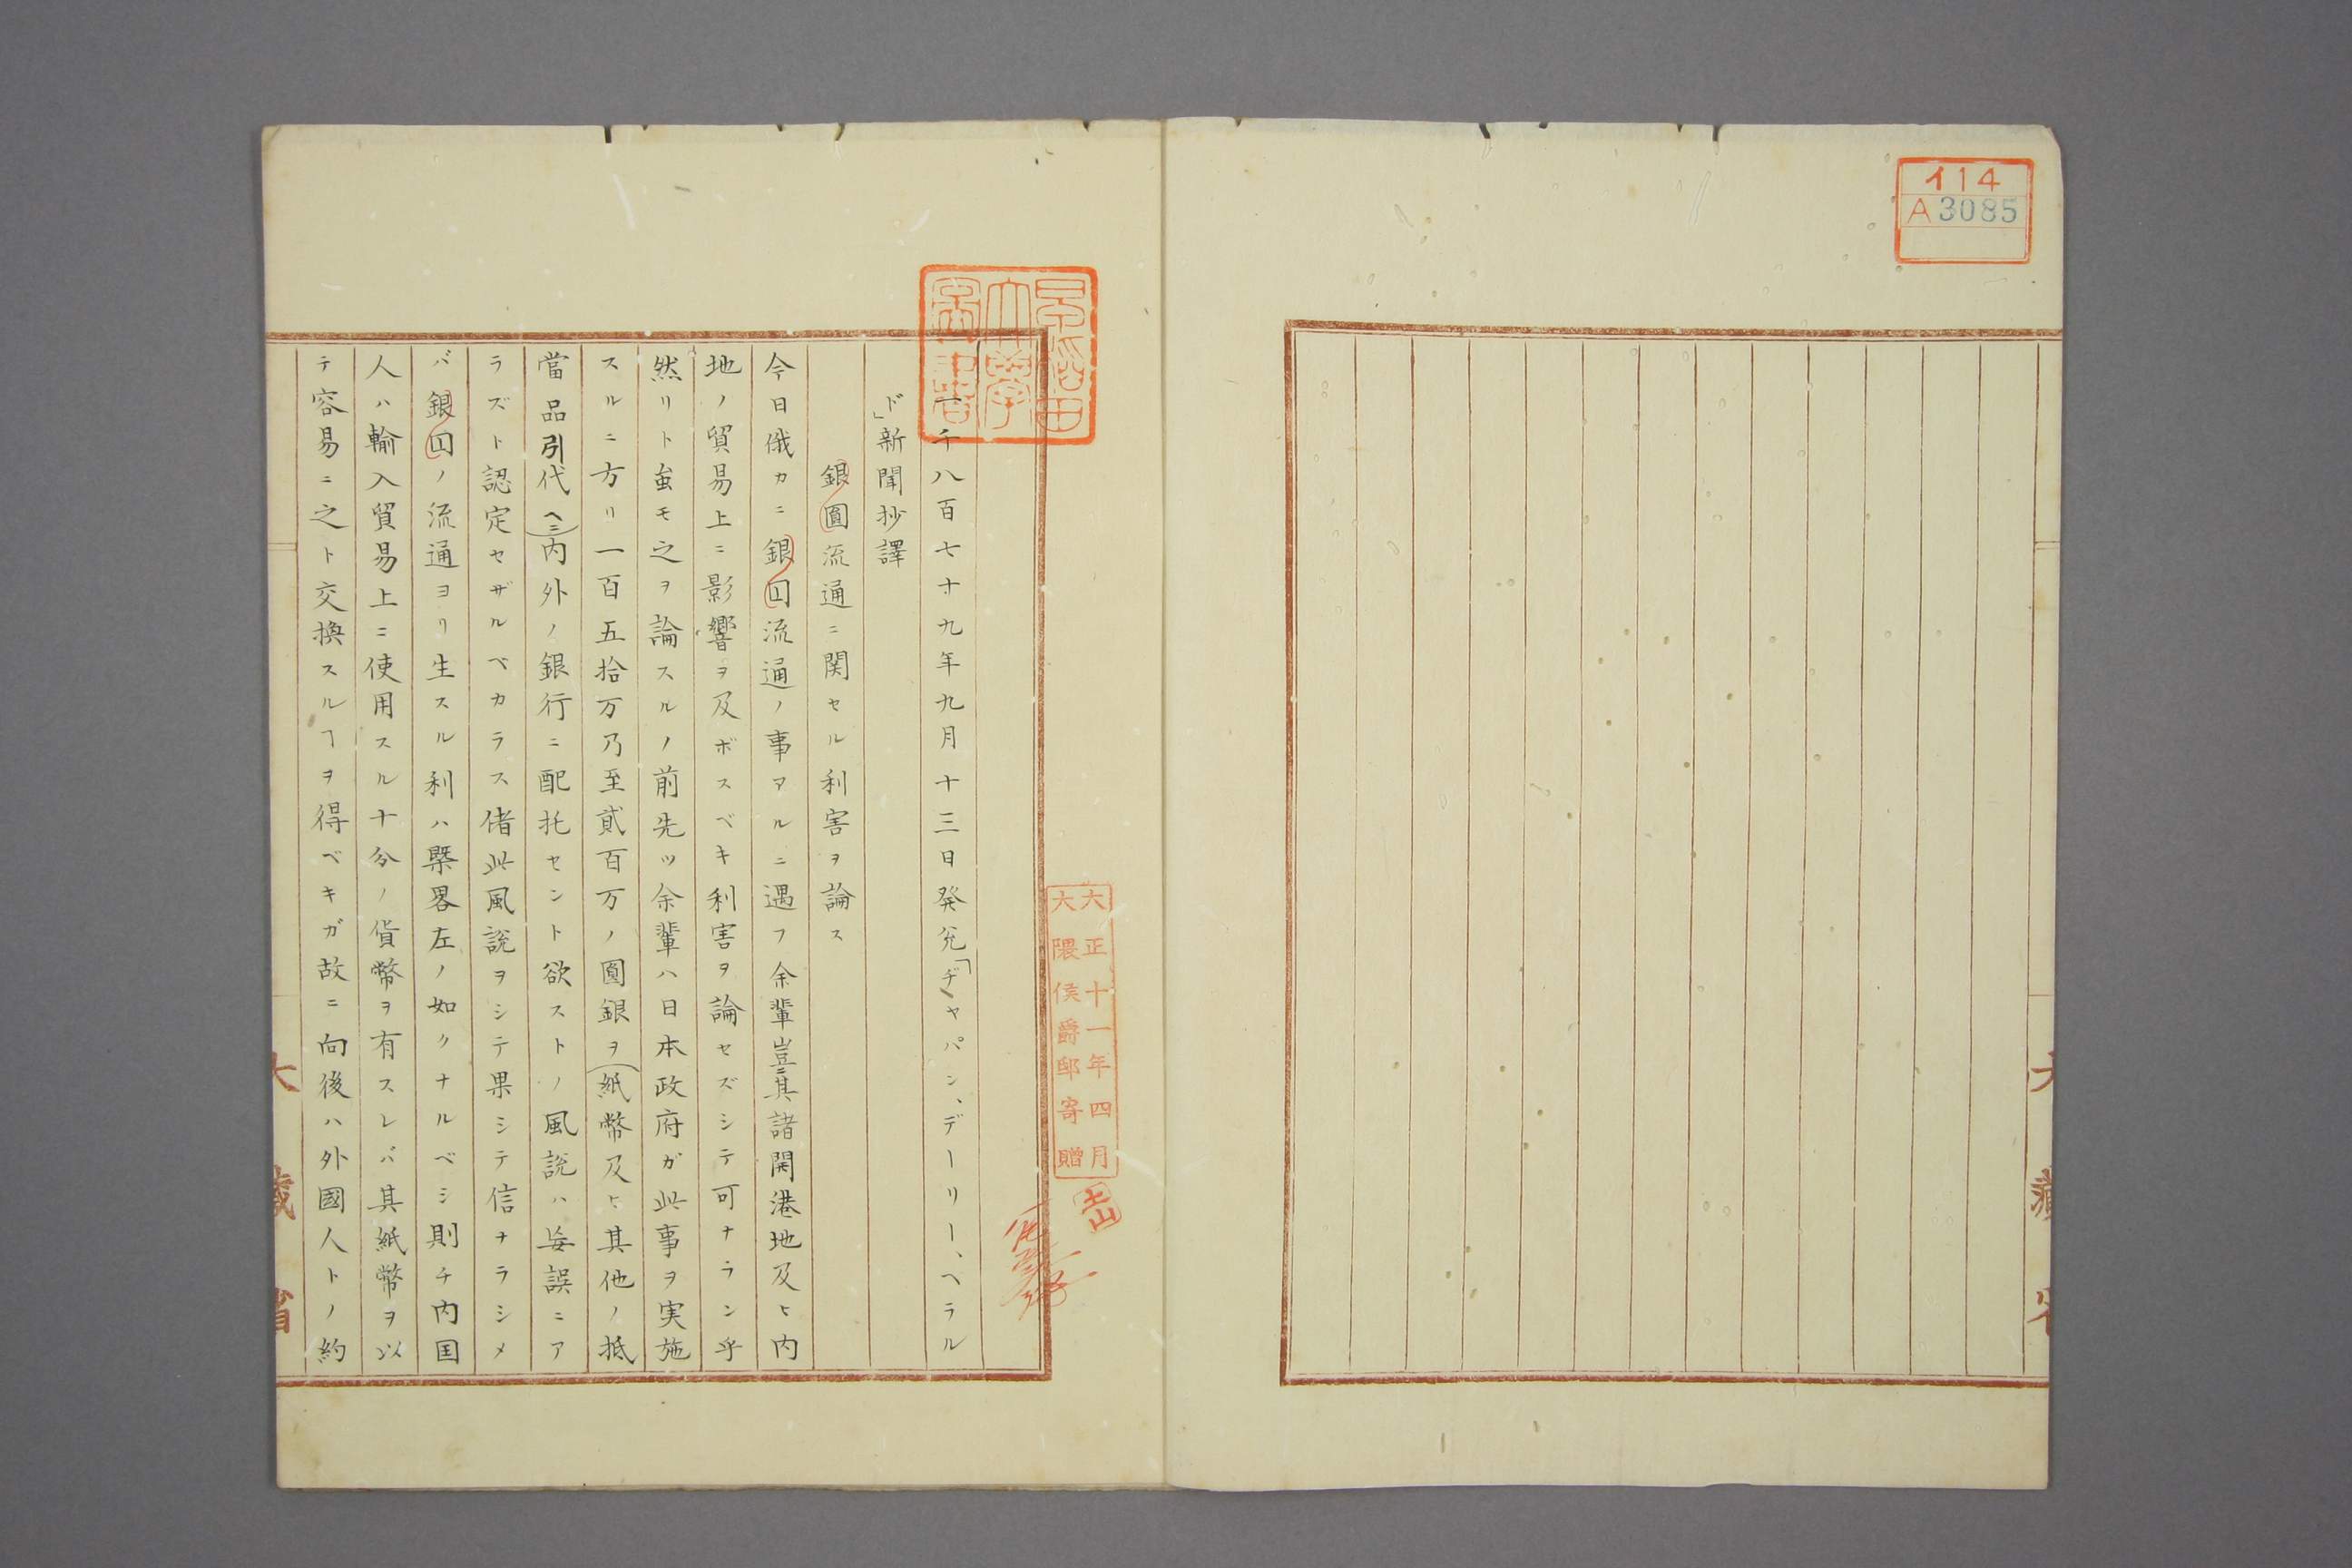 イ14
A3085
早稲田
大學
圖書
大正十一年四月
大隈侯爵邸寄贈
一千八百七十九年九月十三日発兌「ヂャパン、デーリー、ヘラル
ド」新聞抄譯
銀圓流通ニ関セル利害ヲ論ス
今日俄カニ銀囙流通ノ事アルニ遇フ余輩豈ニ其諸開港地及ヒ内
地ノ貿易上ニ影響ヲ及ボスベキ利害ヲ論セズシテ可ナラン乎
然リト虽モ之ヲ論スルノ前先ツ余輩ハ日本政府ガ此事ヲ実施
スルニ方リ一百五拾万乃至貳百万ノ圓銀ヲ(紙幣及ヒ其他ノ抵
當品引代ヘニ)内外ノ銀行ニ配托セント欲ストノ風説ハ妄誤ニア
ラズト認定セザルベカラス偖此風説ヲシテ果シテ信ナラシメ
バ銀囙ノ流通ヨリ生スル利ハ槩畧左ノ如クナルベシ則チ内国
人ハ輸入貿易上ニ使用スル十分ノ貨幣ヲ有スレバ其紙幣ヲ以
テ容易ニ之ト交換スルヿヲ得ベキガ故ニ向後ハ外國人トノ約
大藏省
大藏省